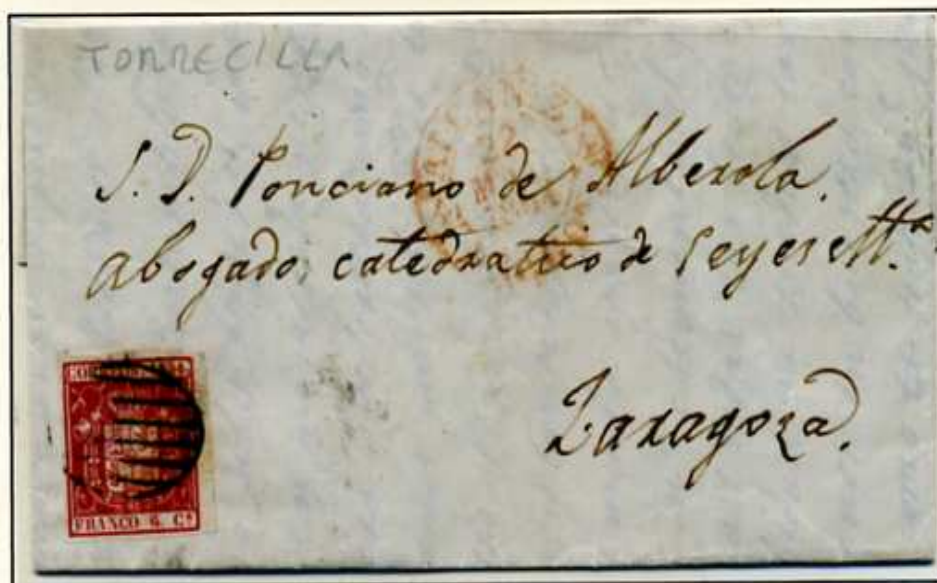 TORRECILLA
S. D. Ponciano de Alberola.
Abogado, catedratico de Leyes ett.ª
Zaragoza.
CORREOS
FRANCO 6 Cs